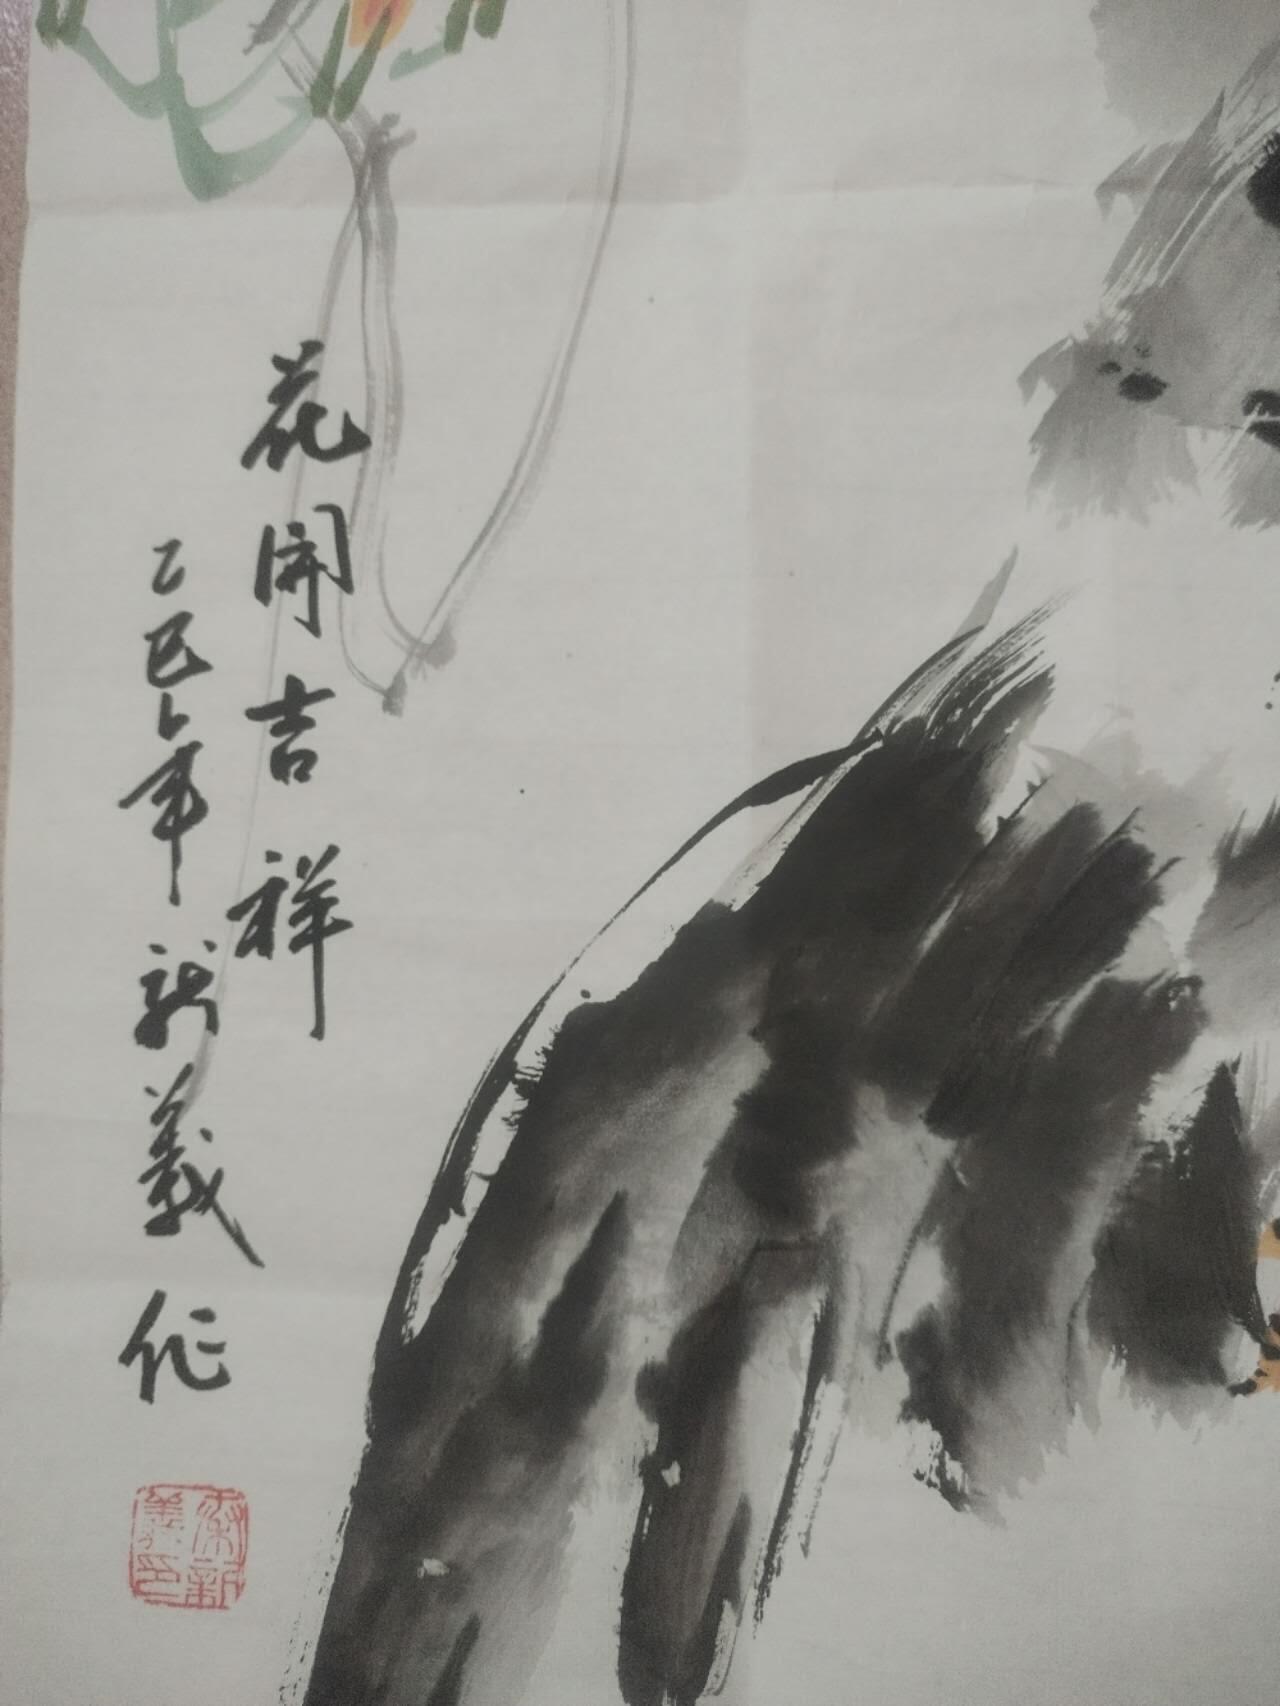 花開吉祥
乙巳年新義作